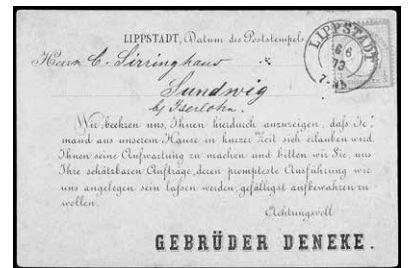 LIPPSTADT, Datum des Poststempels
LIPPSTADT
6 6
73
7-8N
Herrn C. Sirringhaus
Sundwig
b/ Iserlohn.
Wir beehren uns, Ihnen hierdurch anzuzeigen, dafs Je-
mand aus unserem Hause in kurzer Zeit sich erlauben wird
Ihnen seine Aufwartung zu machen und bitten wir Sie, uns
Ihre schätzbaren Aufträge, deren prompteste Ausführung wir
uns angelegen sein lafsen werden, gefälligst aufbewahren zu
wollen.
Achtungsvoll
GEBRÜDER DENEKE.